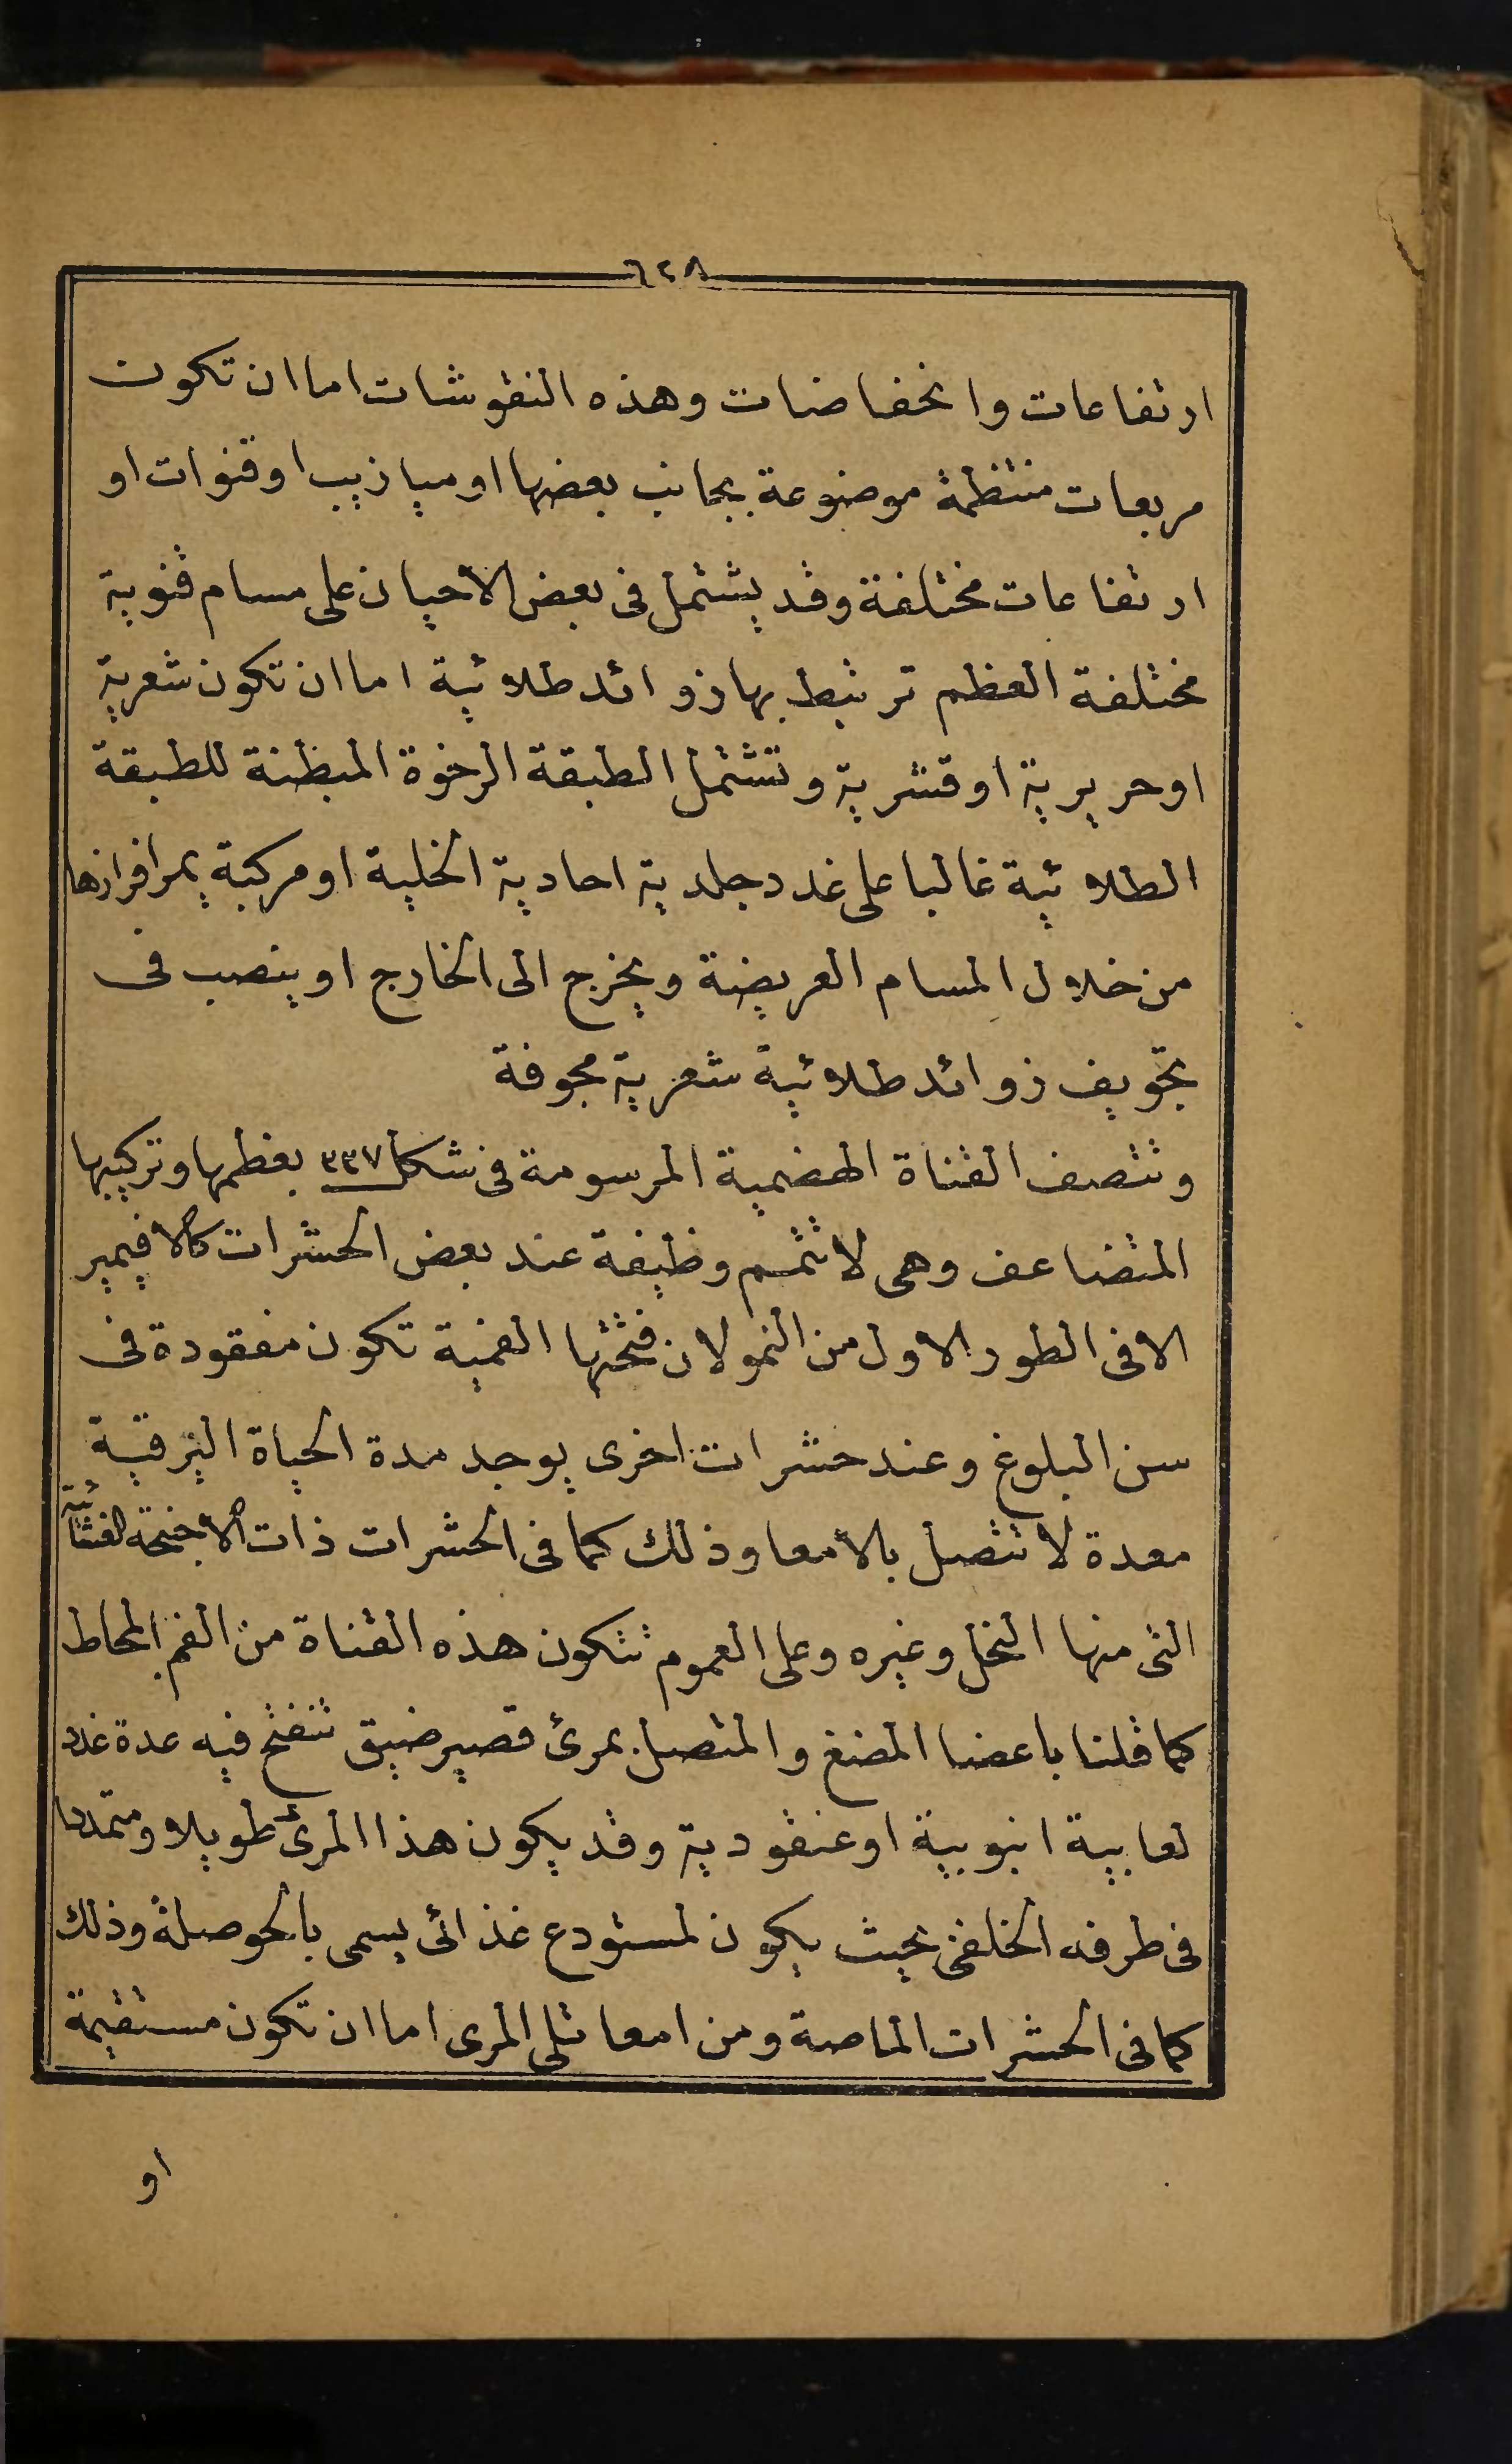 ٦٢٨
ارتفاعات وانخفاضات وهذه النقوشات اما ان تكون
مربعات منتظمة موضوعة بجانب بعضها او ميازيب او قنوات او
ارتفاعات مختلفة وقد يشتمل فى بعض الأحيان على مسام قنوية
مختلفة العظم ترتبط بها زوائد طلائية اما ان تكون شعرية
او حريرية او قشرية وتشتمل الطبقة الرخوة المبطنة للطبقة
الطلائية غالبا على غدد جلدية احادية الخلية او مركبة يمر افرازها
من خلال المسام العريضة ويخرج الى الخارج او ينصب فى
تجويف زوائد طلائية شعرية مجوفة
وتتصف القناة الهضمية المرسومة فى شكل ٣٣٧ بعظمها وتركيبها
المتضاعف وهى لا تتمم وظيفة عند بعض الحشرات كالافيمير
الا فى الطور الاول من النمو لان فتحتها الفمية تكون مفقودة فى
سن البلوغ وعند حشرات اخرى يوجد مدة الحياة اليرقية
معدة لا تتصل بالأمعا وذلك كما فى الحشرات ذات الأجنحة الغشائية
التى منها النحل وغيره وعلى العموم تتكون هذه القناة من الفم المحاط
كما قلنا باعضا المضغ والمتصل بمرئ قصير ضيق تنفتح فيه عدة غدد
لعابية انبوبية او عنقودية وقد يكون هذا المرئ طويلا ومتمددا
فى طرفه الخلفى بحيث يكون لمستودع غذائى يسمى بالحوصلة وذلك
كما فى الحشرات الماصة ومن امعا تلى المرى اما ان تكون مستقيمة
او